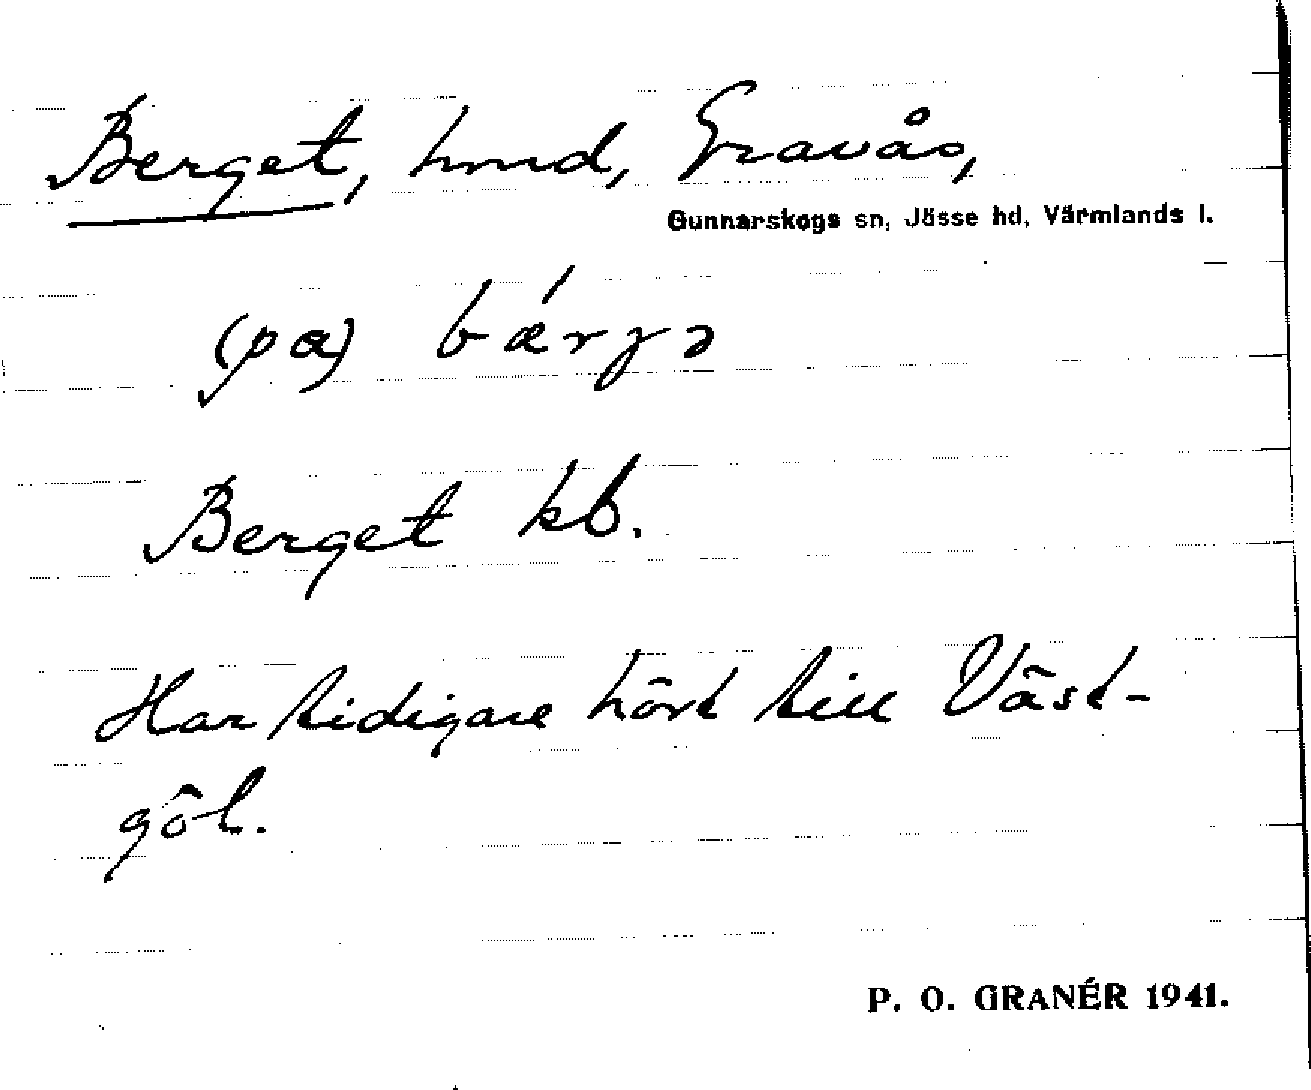 Berget, hmd, Gravås,
Gunnarskogs sn, Jösse hd, Värmlands l.
(pɑ) bǽrjə
Berget kb.
Har tidigare hört till Väst-
göl.
P. O. GRANÉR 1941.